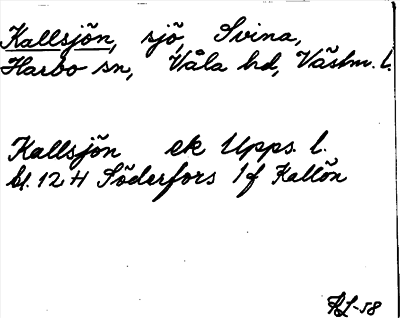 Kallsjön, sjö, Svina,
Harbo sn, Våla hd, Västm. l.
Kallsjön ek Upps. l.
bl. 12 H Söderfors 1f Kallön
-58